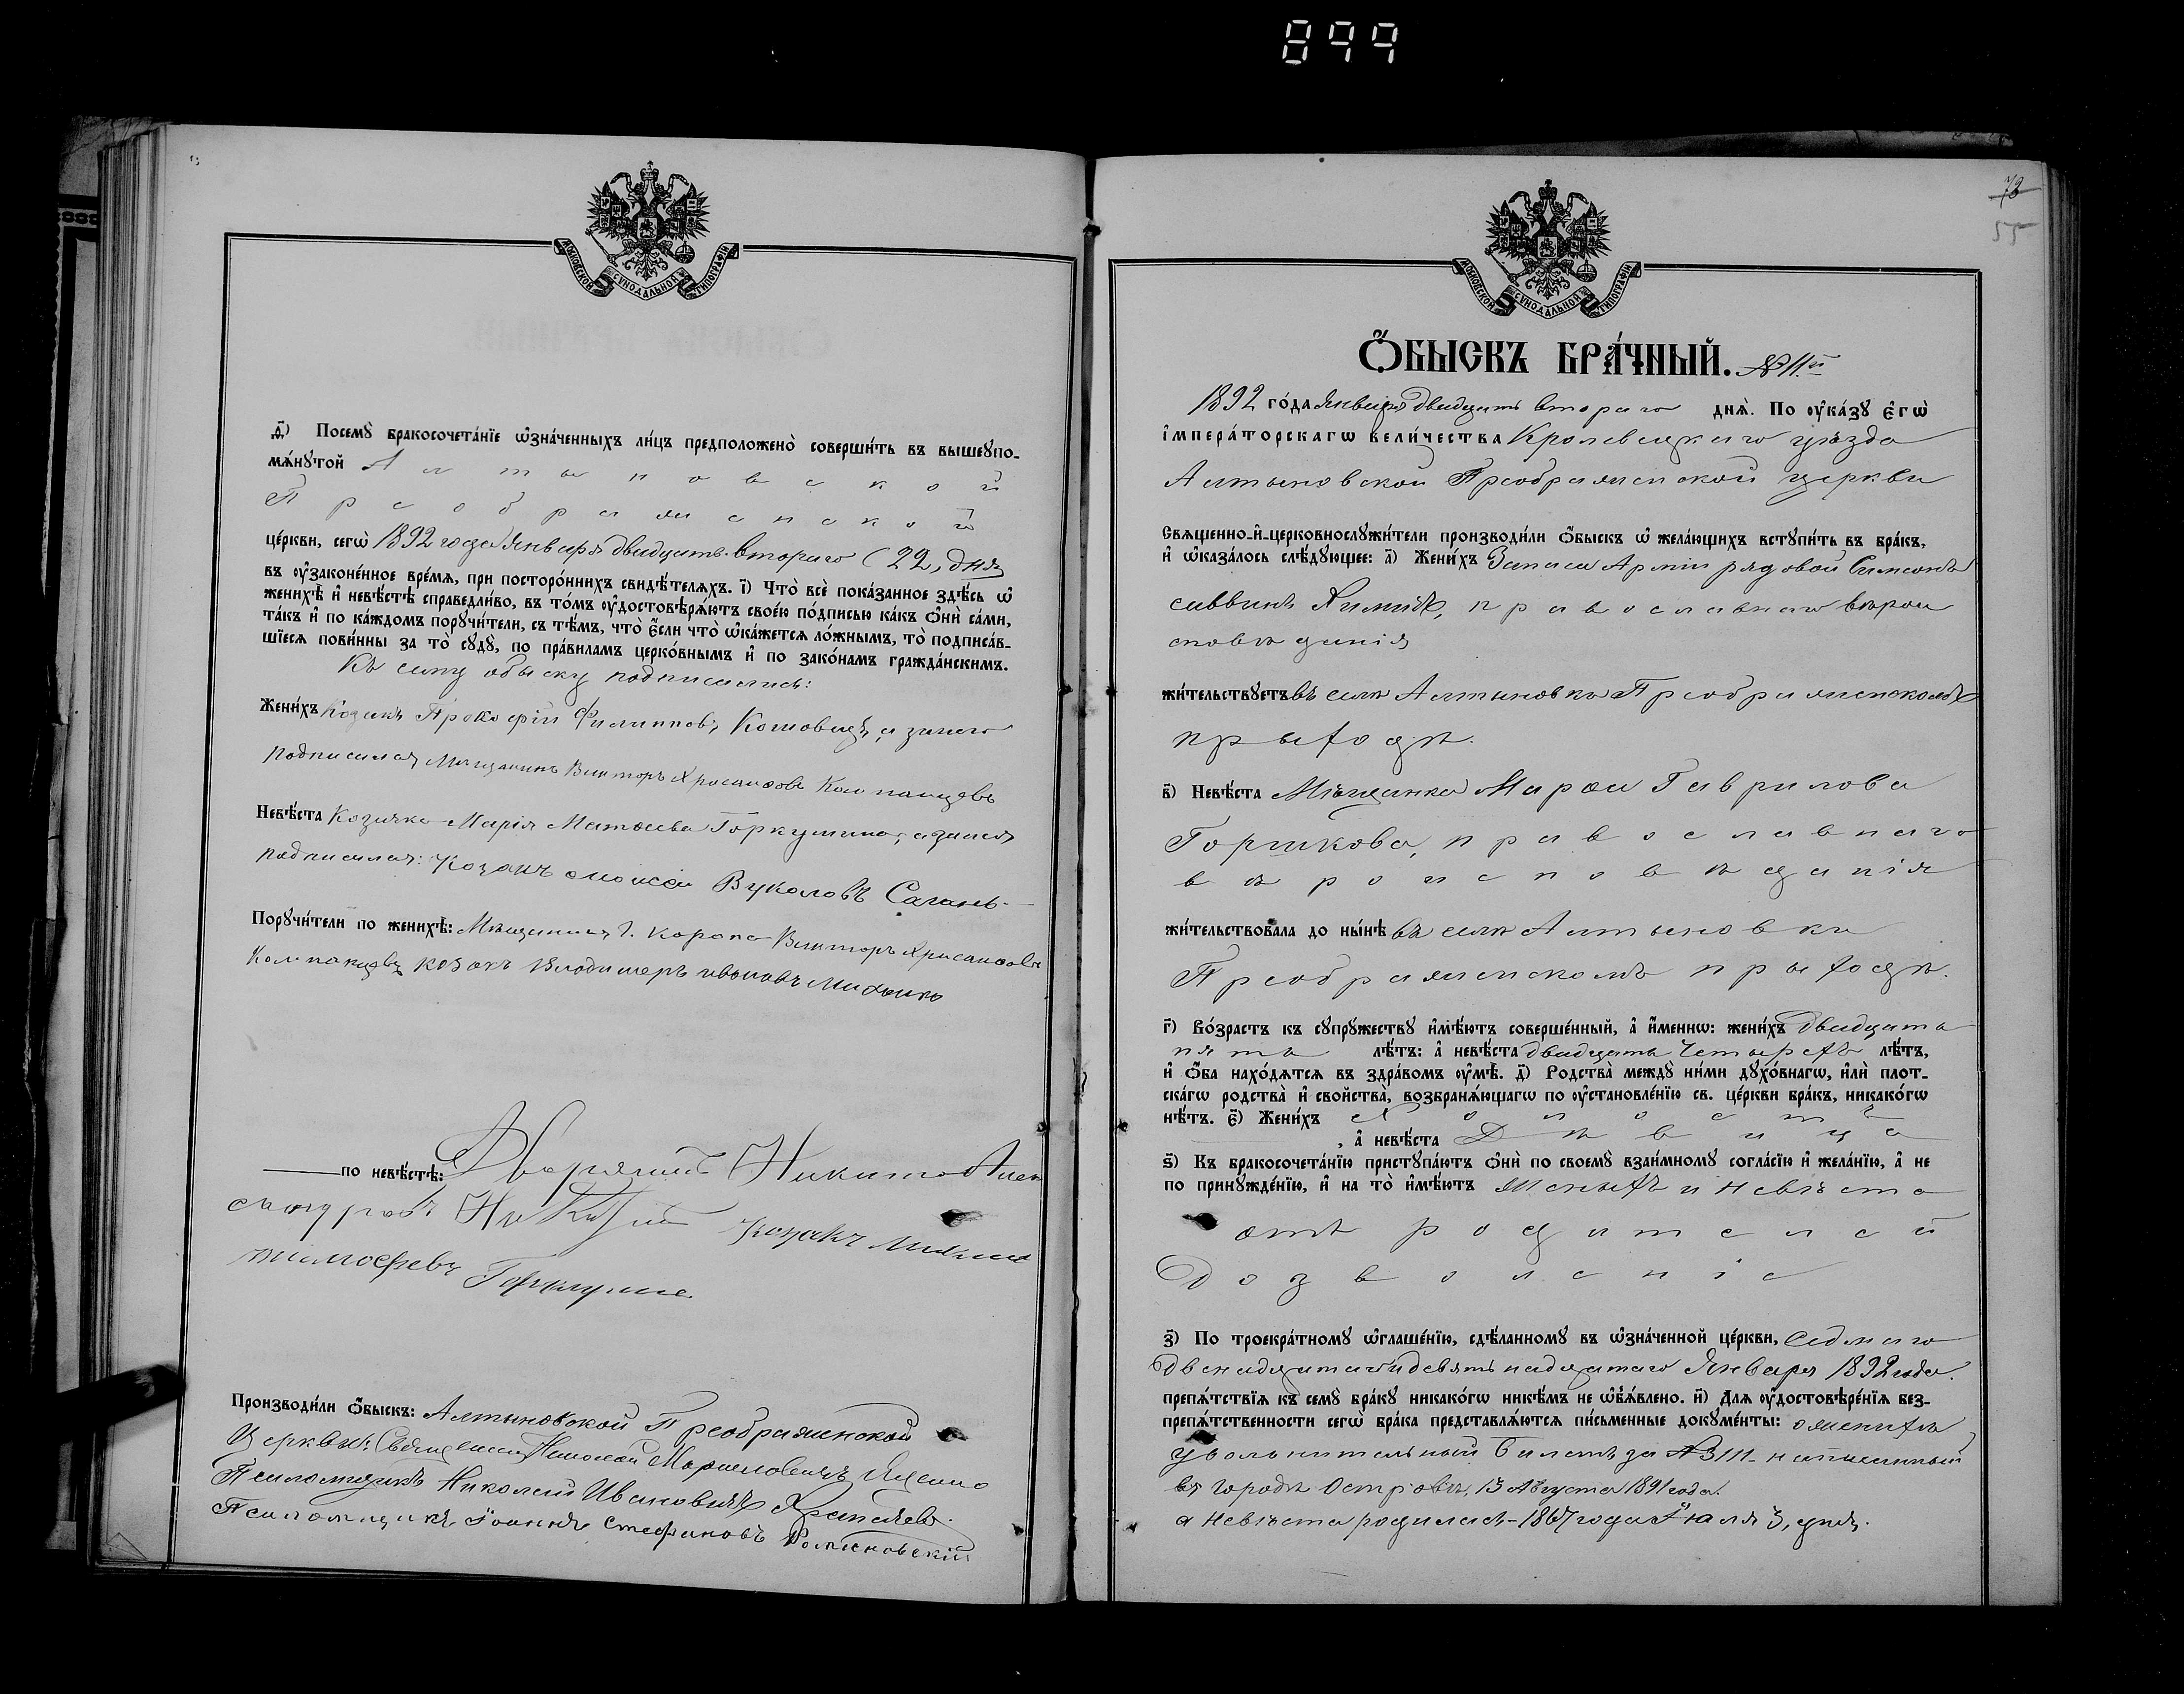 899
МОСКОВСКОЙ СѴНОДАЛЬНОЙ ТИПОГРАФІИ
Посемꙋ̀ бракосочета́нїе ѡ҆зна́ченныхъ ли́цъ предположено̀ соверши́ть въ вышеꙋпо-
мѧ́нꙋтой Алтыновской
Преображенской
це́ркви, сегѡ̀ 1892 года Января двадцать втораго (22) дня
въ оу҆законе́нное вре́мѧ, при посторо́ннихъ свидѣ́телѧхъ. і҃) Что̀ всѐ пока́занное здѣ́сь ѡ҆
женихѣ̀ и҆ невѣ́стѣ справедли́во, въ то́мъ оу҆достовѣрѧ́ютъ свое́ю по́дписью ка́къ ѻ҆нѝ са́ми,
та́къ и҆ по ка́ждомъ порꙋчи́тели, съ тѣ́мъ, что̀ є҆́сли что̀ ѡ҆ка́жетсѧ ло́жнымъ, то̀ подписа́в-
шїесѧ пови́нны за то̀ сꙋдꙋ̀, по пра́виламъ церко́внымъ и҆ по зако́намъ гражда́нскимъ.
Къ сему обыску подписались:
Жени́хъ Козакъ Прокофій Филипповъ а занего
подписался Мѣщанинъ Викторъ Хрисанфовъ Компанцевъ
Невѣ́ста Козачка Марія Матѳеева Горкушина, а занея
подписался: Козакъ Вуколовъ Сагань
Порꙋчи́тели по женихѣ̀: Мѣщанинъ г. Коропа Викторъ Хрисанфовъ
Компанцевъ козакъ Владимеръ ивановъ
по невѣ́стѣ: Дворянинъ Никита Алек
сандровъ козакъ
тимофеевъ
Производи́ли ѻ҆́быскъ: Алтыновской Преображенской
Церкви: Священникъ Николай
Псаломщикъ Николай Ивановичъ
Псаломщикъ Іоаннъ Стефановъ
73
55
МОСКОВСКОЙ СѴНОДАЛЬНОЙ ТИПОГРАФІИ
Ѻ҆́БЫСКЪ БРА́ЧНЫЙ. №11й
1892 го́да Января двадцать втораго днѧ̀. По оу҆ка́зꙋ Є҆гѡ̀
І҆мпера́торскагѡ Вели́чества Кролевецкаго уѣзда
Алтыновской Преображенской церкви
Свѧщенно-и҆-церковнослꙋжи́тели производи́ли ѻ҆́быскъ ѡ҆ жела́ющихъ встꙋпи́ть въ бра́къ,
и҆ ѡ҆каза́лось слѣ́дꙋющее: а҃) Жени́хъ Запаса Арміи рядовой Симеонъ
Саввинъ православнаго вѣрои
сповѣданія
жи́тельствꙋетъ въ селѣ Алтыновкѣ Преображенскомъ
прыходѣ.
в҃) Невѣ́ста Мѣщанка Марѳа Гаврилова
Горшкова, православнаго
вѣроисповѣданія
жи́тельствовала до ны́нѣ въ селѣ Алтыновки
Преображенскомъ прыходѣ.
г҃) Во́зрастъ къ сꙋпрꙋ́жествꙋ и҆мѣ́ютъ соверше́нный, а҆ и҆́менно: жени́хъ двадцать
пять лѣ́тъ: а҆ невѣ́ста двадцать четырехъ лѣ́тъ,
и҆ ѻ҆́ба нахо́дѧтсѧ въ здра́вомъ оу҆мѣ̀. д҃) Родства̀ междꙋ̀ ни́ми дꙋхо́внагѡ, и҆лѝ плот-
ска́гѡ родства̀ и҆ свойства̀, возбранѧ́ющагѡ по оу҆становле́нїю св. це́ркви бра́къ, никако́гѡ
нѣ́тъ. є҃) Жени́хъ Холостъ
, а҆ невѣ́ста Дѣвица
ѕ҃) Къ бракосочета́нїю пристꙋпа́ютъ ѻ҆нѝ по своемꙋ̀ взаи́мномꙋ согла́сїю и҆ жела́нїю, а҆ не
по принꙋжде́нїю, и҆ на то̀ и҆мѣ́ютъ женыхъ и невѣста
отъ родителей
Дозволеніе
з҃) По троекра́тномꙋ ѡ҆глаше́нїю, сдѣ́ланномꙋ въ ѡ҆зна́ченной це́ркви, седмаго
двенадцатаго и девятьнадцатаго Января 1892 года.
препѧ́тствїѧ къ семꙋ̀ бра́кꙋ никако́гѡ никѣ́мъ не ѡ҆б̾ѧ́влено. и҃) Длѧ оу҆достовѣре́нїѧ без-
препѧ́тственности сегѡ̀ бра́ка представлѧ́ютсѧ пи́сьменные докꙋме́нты: о женихѣ
увольнительный билетъ за №3111 написанный
въ городѣ Островѣ, 13 Августа 1891 года.
а невѣста родилась 1867 года Іюля 3, дня.